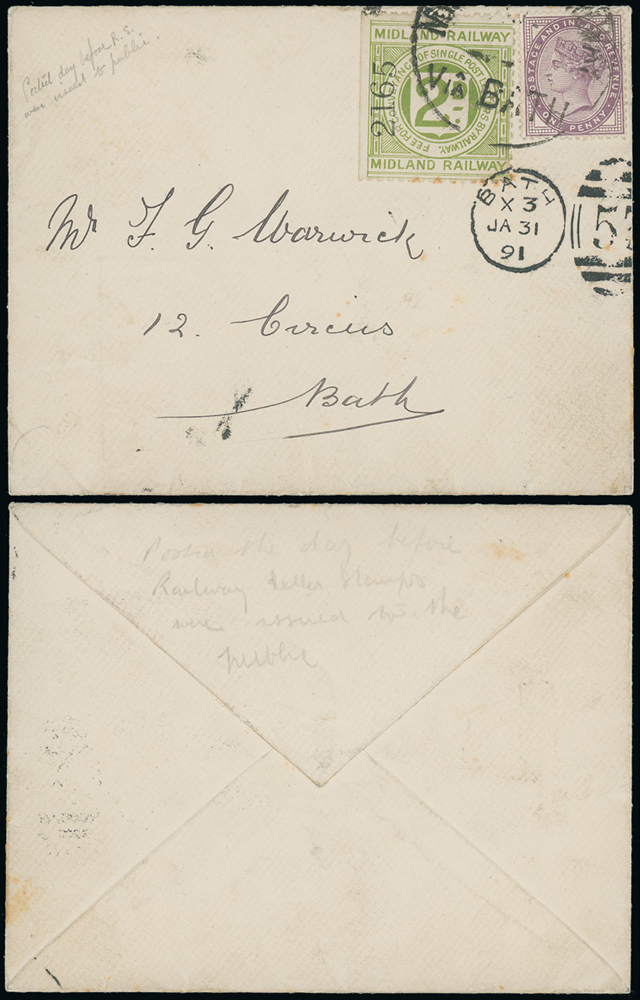 Posted day before R.S.
were issued to public.
MIDLAND RAILWAY
FEE FOR CONVEYANCE OF SINGLE POST LETTERS BY RAILWAY.
2165
2D
MIDLAND RAILWAY
POSTAGE AND INLAND REVENUE
ONE PENNY
VIA BATH
BATH
X 3
JA 31
91
Mr F. G. Warwick
12. Circus
Bath
Posted the day before
Railway Letter Stamps
were issued to the
public